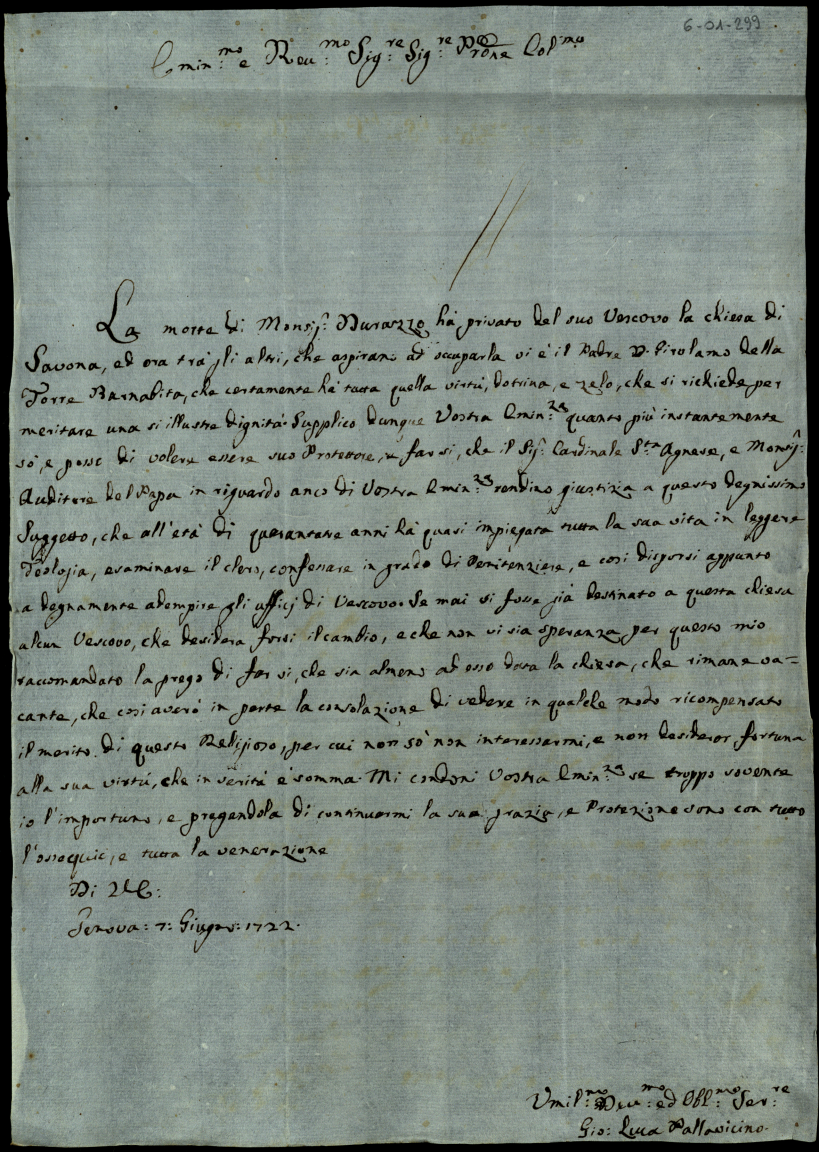 6-01-299
Emin:mo e Reu:mo Sig:re Sig:re Prōne Col:mo
La morte di Monsig:r Durazzo há privato del suo Vescovo la chiesa di
Savona, ed ora trá gli altri, che aspirano ad occuparla vi é il Padre D. Girolamo della
Torre Barnabita, che certamente há tutta quella virtú, dotrina, e zelo, che si richiede per
meritare una si illustre dignitá. Supplico dunque Vostra Emin:za quanto piú instantemente
só, e posso di volere essere suo Protettore, e far si, che il Sig:r Cardinale S:ta Agnese, e Monsig:r
Auditore del Papa in riguardo anco di Vostra Emin:za rendino giustizia a questo degnissimo
Suggetto, che all'etá di quarantatre anni há quasi impiegata tutta la sua vita in leggere
Teologia, esaminare il clero, confessare in grado di Penitenziere, e cosí disporsi appunto
a degnamente adempire gli ufficj di Vescovo. Se mai si fosse giá destinato a questa chiesa
alcun Vescovo, che desidera forsi il cambio, e che non vi sia speranza per questo mio
raccomandato la prego di far si, che sia almeno ad esso data la chiesa, che rimane va=
cante, che cosí averó in parte la consolazione di vedere in qualche modo ricompensato
il merito di questo Religioso, per cui non só non interessarmi, e non desiderar fortuna
alla sua virtú, che in veritá é somma. Mi condoni Vostra Emin:za se troppo sovente
io l'importuno, e pregandola di continuarmi la sua grazia, e Protezione sono con tutto
l'ossequio, e tutta la venerazione
Di V E:
Genova: 7: Giugno: 1722.
Umil:mo Deu:mo ed Obl:mo Ser:re
Gio: Luca Pallavicino.